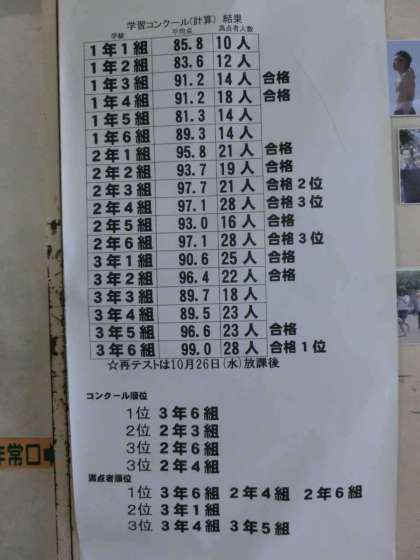 学習コンクール(計算) 結果
学級 平均点 満点者人数
1年1組 85.8 10人
1年2組 83.6 12人
1年3組 91.2 14人 合格
1年4組 91.2 18人 合格
1年5組 81.3 14人
1年6組 89.3 14人
2年1組 95.8 21人 合格
2年2組 93.7 19人 合格
2年3組 97.7 21人 合格2位
2年4組 97.1 28人 合格3位
2年5組 93.0 16人 合格
2年6組 97.1 28人 合格3位
3年1組 90.6 25人 合格
3年2組 96.4 22人 合格
3年3組 89.7 18人
3年4組 89.5 23人
3年5組 96.6 23人 合格
3年6組 99.0 28人 合格1位
☆再テストは10月26日(水)放課後
コンクール順位
1位 3年6組
2位 2年3組
3位 2年6組
3位 2年4組
満点者順位
1位 3年6組 2年4組 2年6組
2位 3年1組
3位 3年4組 3年5組
常口